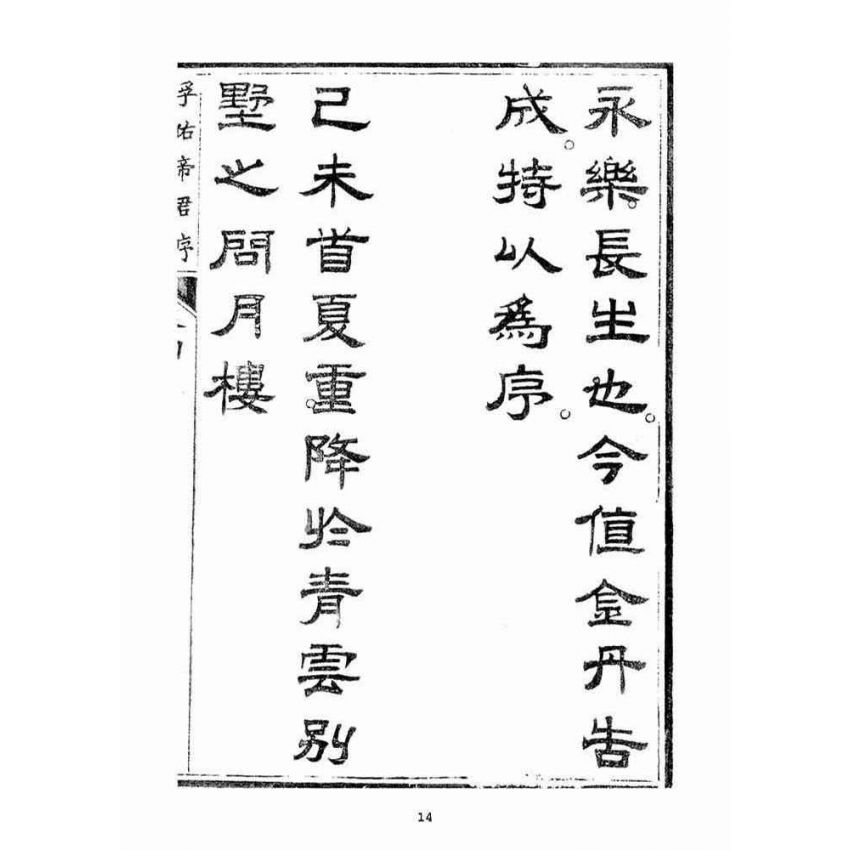 永樂。長生也。今值金丹告
成。特以為序。
己未首夏。重降於青雲別
墅之問月樓
孚佑帝君序
14